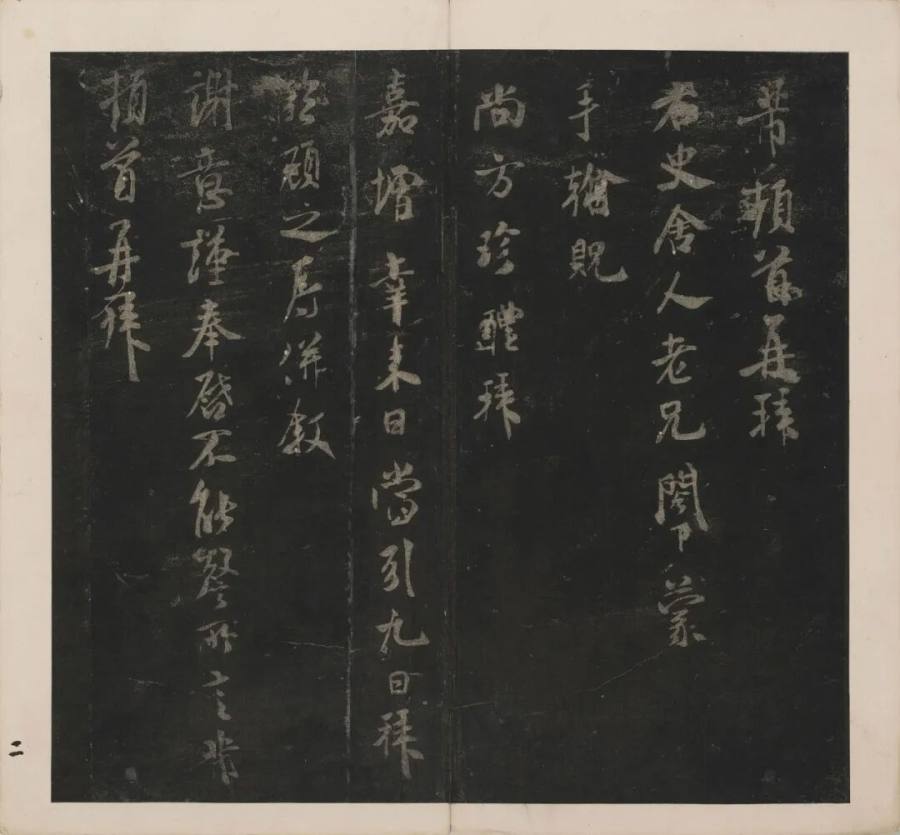 芾頓首再拜
右史舍人老兄閣下蒙
手翰貺
尚方珍醴拜
嘉增幸來日當引九日拜
臨顧之辱併敘
謝意謹奉啓不能罄所言芾
頓首再拜
二